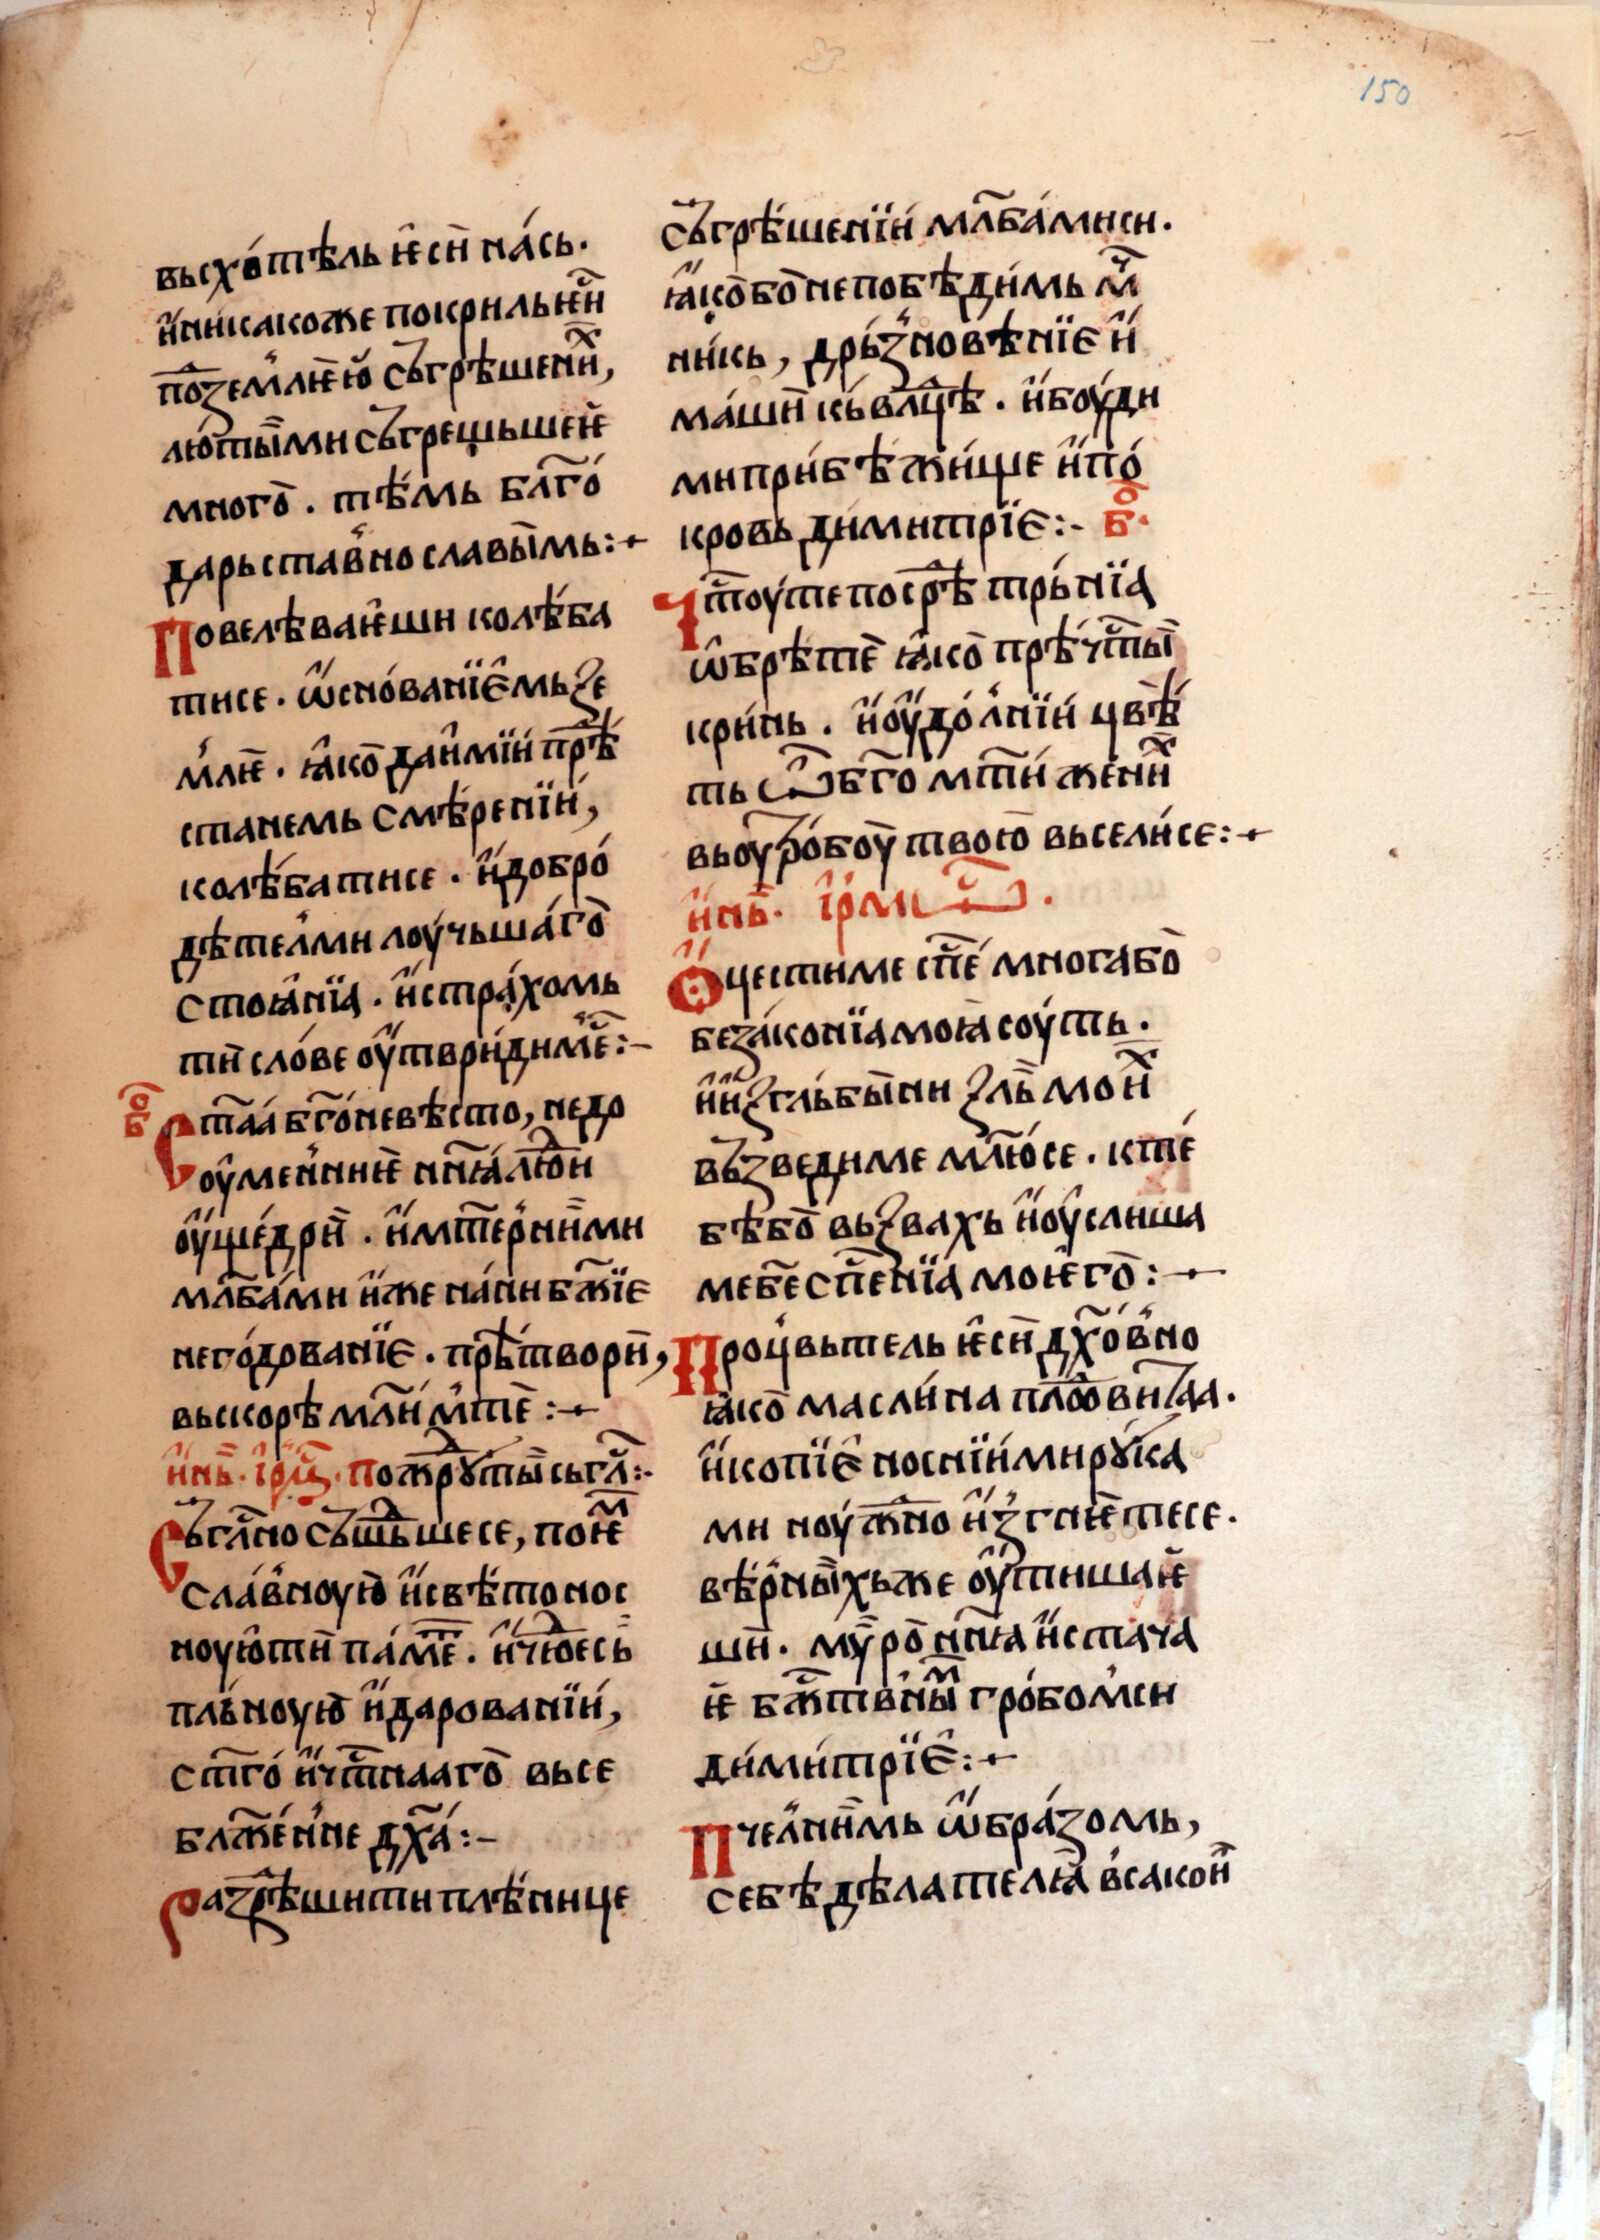 150
вьсхо́тѣль ѥ҆сѝ на́сь.
и҆ никакоже покриль ѥ҆сѝ
по̑ꙁемлѥ́ю сьгрѣшенїи́х,
лютыими сьгрешьшеѥ
много̀. тѣ́мь благо́
дарьставно славы́мь:-
Повелѣваѥ҆ши колѣ́ба
тисе. ѡ҆снованїе҆мь ꙁе
млѥ̀. ꙗ҆ко̀ да и҆мїи прѣ́
станемь смѣ́ренїи,
колѣ́батисе. и҆ добро́
дѣтелми лоу́чьша́го̀
стоꙗ́нїа. и҆ стра́хомь
тѝ сло́ве оу҆тврь́ди ме:-
Бо҃
Ст҃аа бг҃оневѣ́сто, недо
оу҆менниѥ нн҃ꙗ лю́ди
оу҆ще́дрѝ. и҆ мт҃ерними
мл҃ба́ми и҆же на́ни бж҃їе
него́дованїе. прѣ́творѝ,
вьскорѣ мл҃и́м те̏:-
и҆нь̀. і҆рм҃с. пожру́ ти̏ сь гл҃:-
Сьгл҃но сьшь́дшесе, поѥ́м
сла́вноую̀ и҆ свѣ́тонос
ноую ти̏ па́мет. и҆ чю́десь
пль́ноую̀ и҆ дарованїи́,
ст҃го́ и҆ чт҃наго̀ вьсе
блж҃е́нне дх҃а́:-
Раꙁрѣши ти плѣ́нице
сьгрѣ́шенїи́ мл҃ба́ми си.
ꙗ҆ко̀ бо̀ непобѣди́мь мч҃
ни́кь, дрьꙁновѣнїе и҆
ма́шѝ кь влⷣцѣ. и҆ боу́ди
ми при́бѣжи́ще и҆ по́
кровь ди́митрїе:- бо҃.
Чт҃оу те посрѣ́ трь́нїа
ѡ҆брѣ́те̏ ꙗ҆ко̀ прѣ́чт҃ы
кри́нь. и҆ оу҆до́лнїи цвѣ́
ть ѿ бг҃о мт҃и же́них
вь оутро́боу твою̀ вьсели́се:-
и҆нь̀. і҆рмос.
Ѻ҆цести ме сп҃е́ многа бо̀
беꙁа́конїа моꙗ соу́ть.
и҆ и҆ꙁ гль́бы́ни ꙁль̀ мои́х
вьꙁведи ме мл҃ю́се. к те́
бѣ бо̀ вьꙁвахь и҆ оу҆слиша
ме бе҃ сп҃енїа моѥго̀:-
Процвьтель ѥ҆сѝ дх҃о́вно
ꙗ҆ко̀ масли́на плѡдови́таа.
и҆ копїе҆носнїи́ми рꙋ́ка
ми ноу́жно и҆ꙁгнѥ́тесе.
вѣ́рныхь же оу҆тишаѥ
шѝ. мѵ́ро нн҃ꙗ и҆стача
ѥ҆ бжⷭ҇твны́м гро́бомси
ди́ми́трїе҆:-
Пчелнѝмь ѡ҆бра́ꙁомь,
себѣ дѣлателꙗ̏ всакоѝ